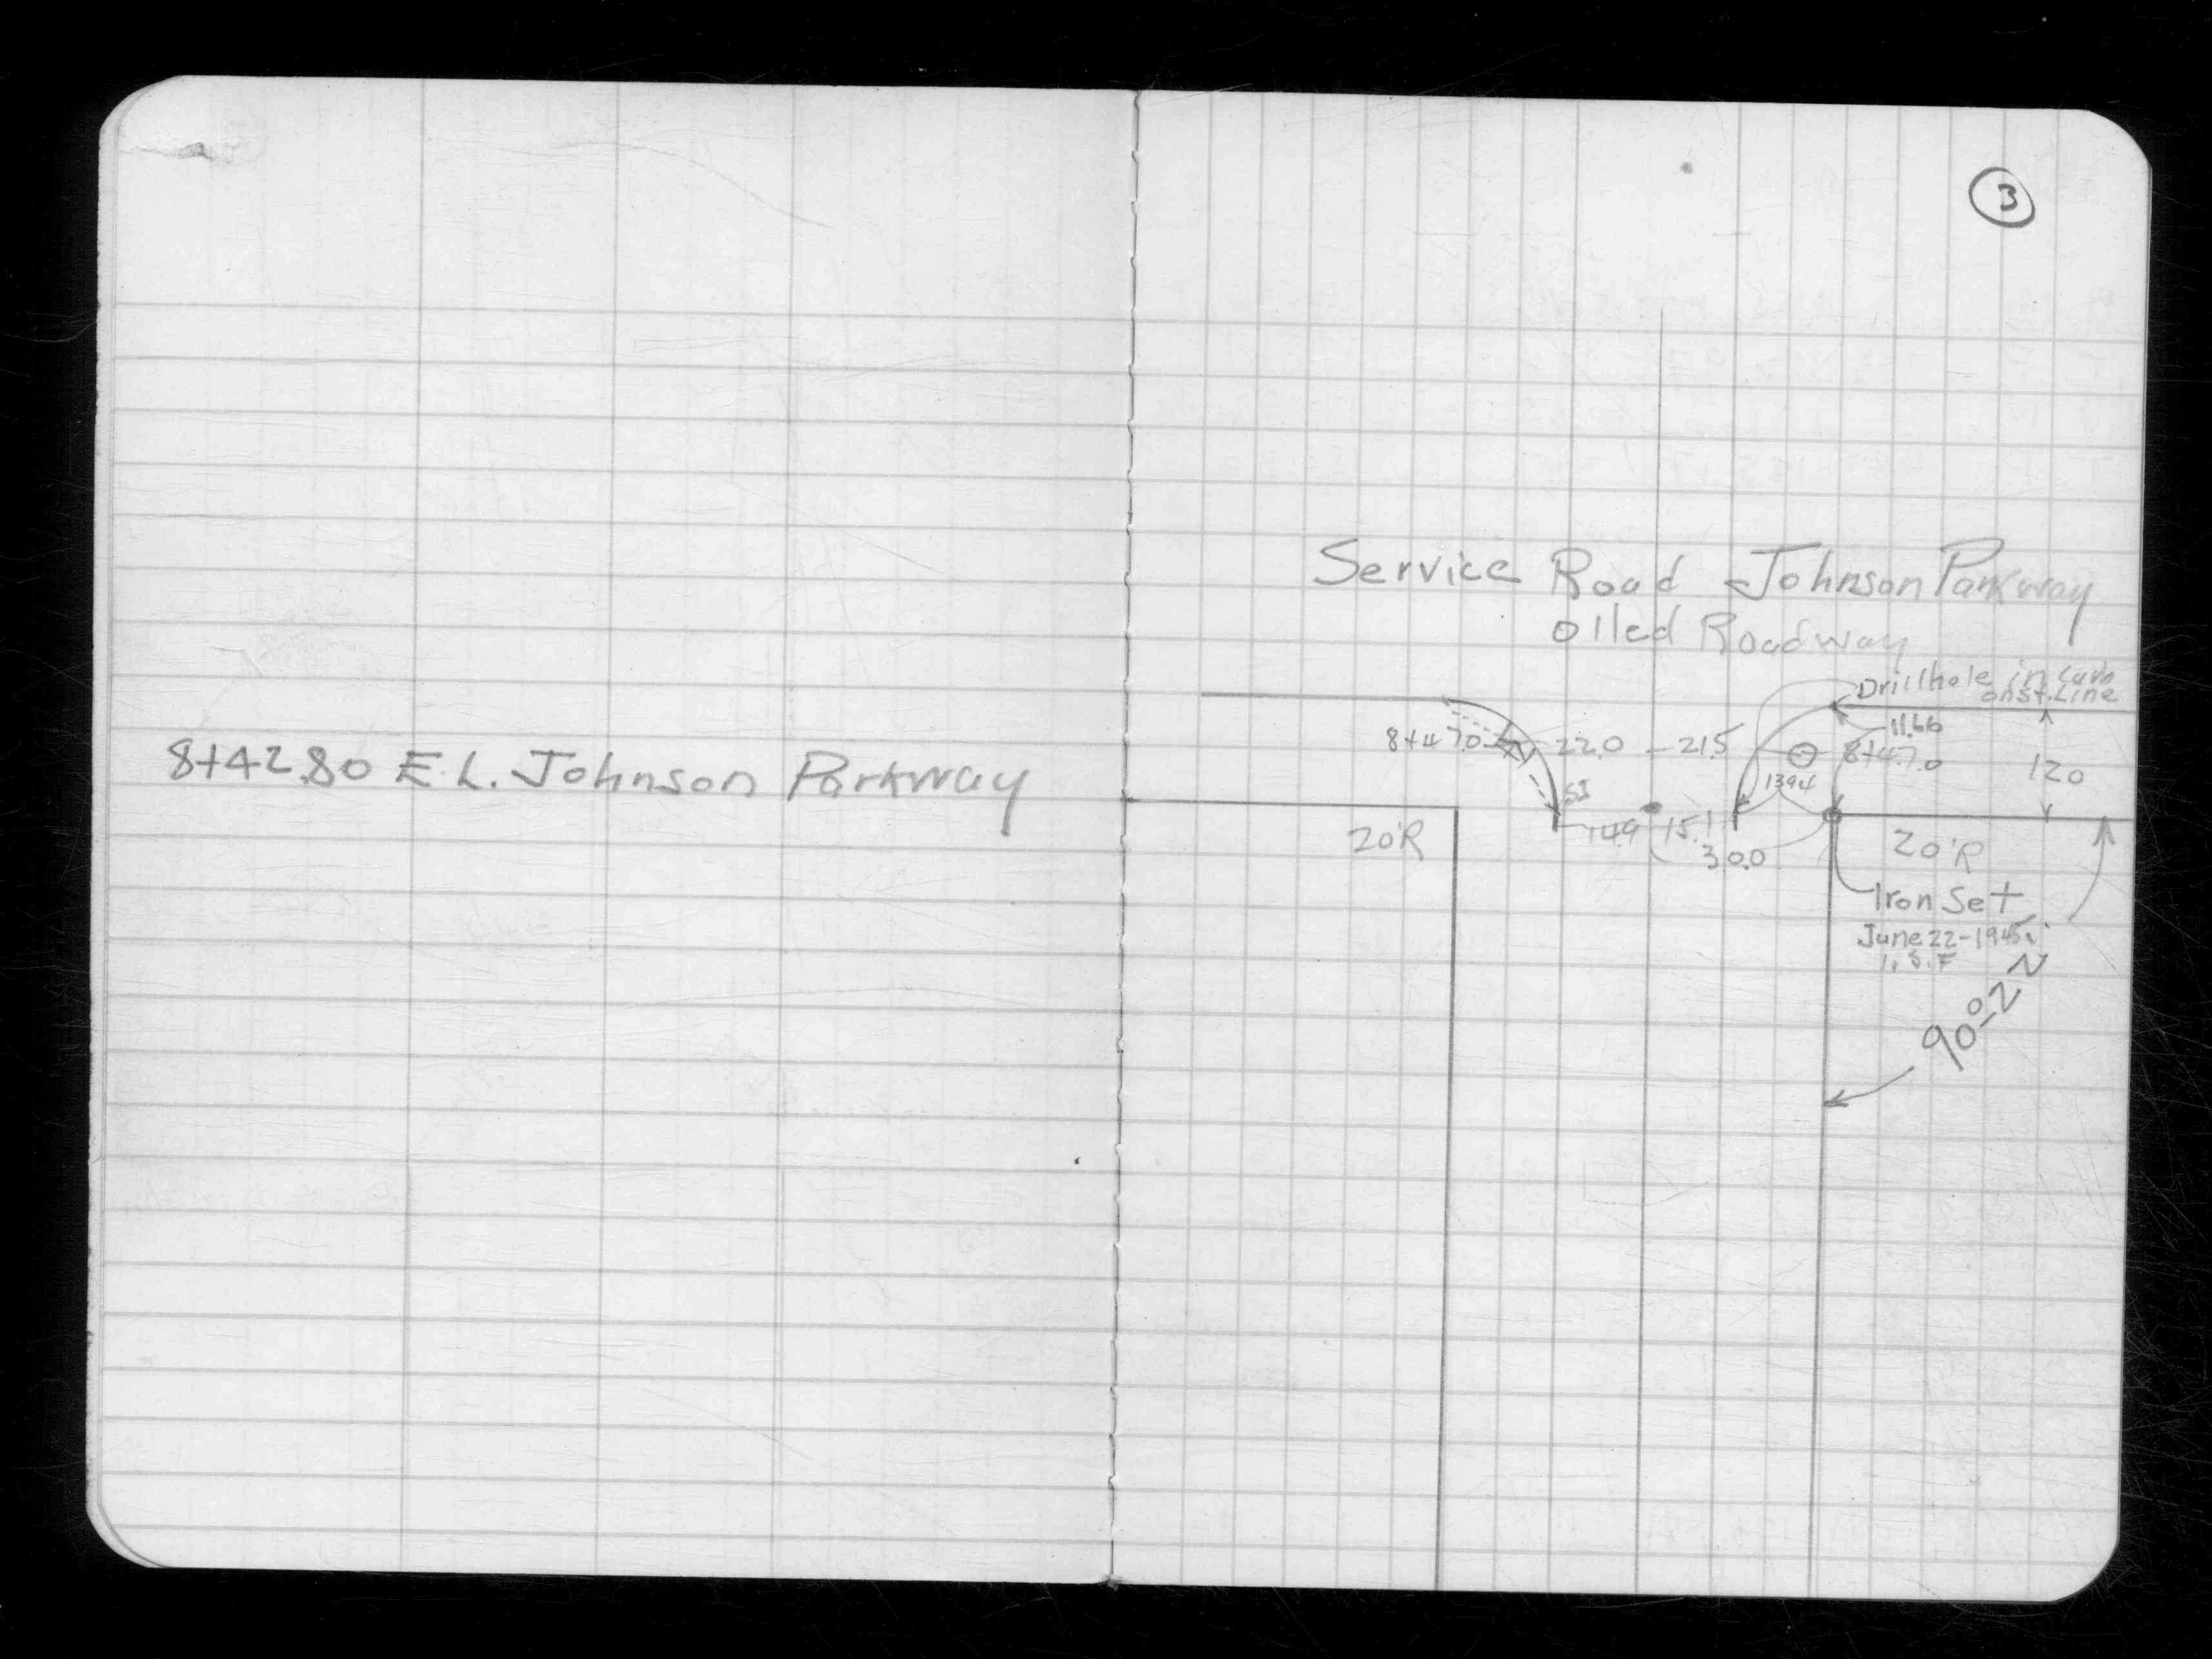 3
8+42.80 E L. Johnson Parkway
Service Road Johnson Parkway
oiled Roadway
Drillhole in curb
on st. Line
11.66
8+47.0 22.0 21.5 8+47.0
13.94
120
14.9 15.1
30.0
20'R
20'R
Iron Set
June 22-1945
90°-2